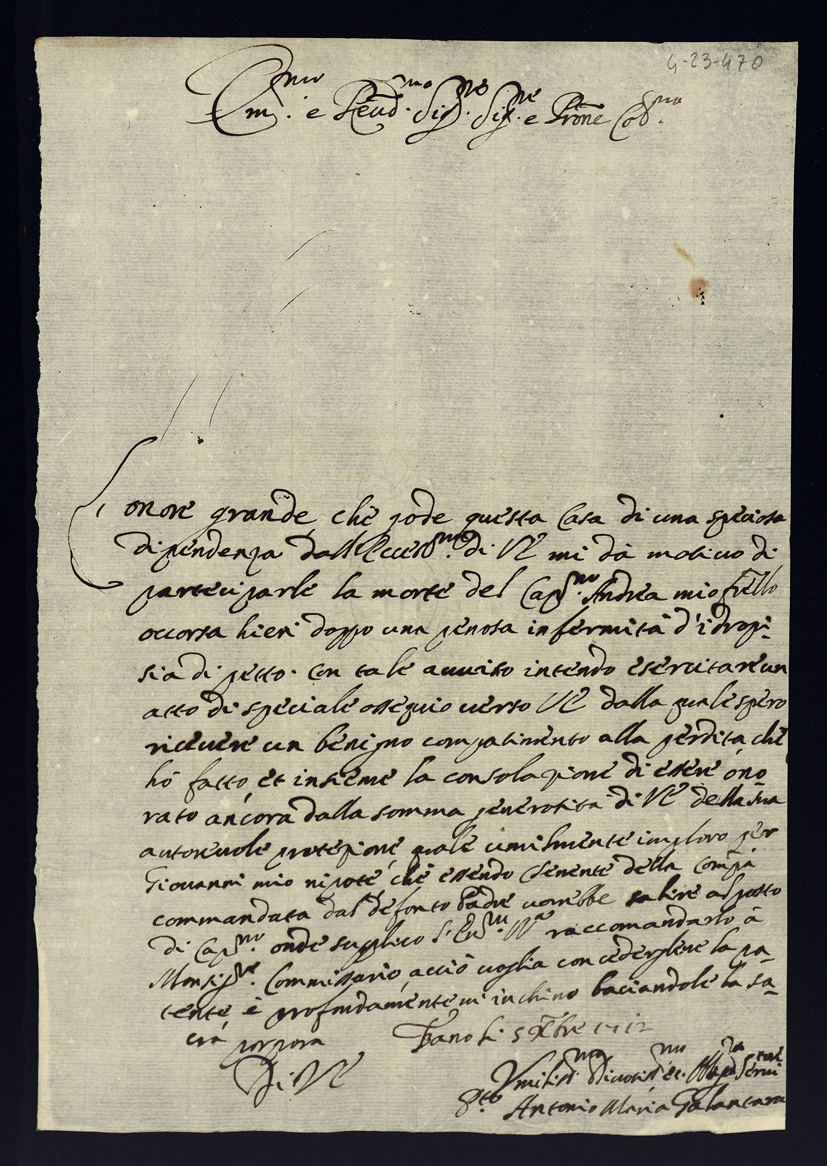 4-23-470
Em.mo e Reud.mo Sig.re Sig.re e Prone Col.mo
onore grande che gode questa Casa di una speciosa
dipendenza dall'Eccell di VE mi dà motiuo di
parteciparle la morte del Cap.no Andrea mio fr̃ello
occorsa hieri doppo una penosa infermità d'idropi-
sia di petto. Con tale auuiso intendo esercitare un
atto di speciale ossequio uerso VE dalla quale spero
riceuere un benigno compatimento alla perdita che
hò fatto et insieme la consolazione di essere ono
rato ancora dalla somma generosita di VE della sua
autoreuole protezione quale umilmente imploro per
Giouanni mio nipote che essendo Tenente della Comp.a
commandata dal defonto Padre uorrebbe salire al posto
di Cap.no onde supplico raccomandarlo à
Monsig.re Commissario acciò uoglia concederglene la pa-
tente e profondamente m'inchino baciandole la sa-
cra porpora Fano li 5 Xbre 1712
Di VE
Vmiliss.mo Diuotis.mo et Serui
Antonio Maria Galantara